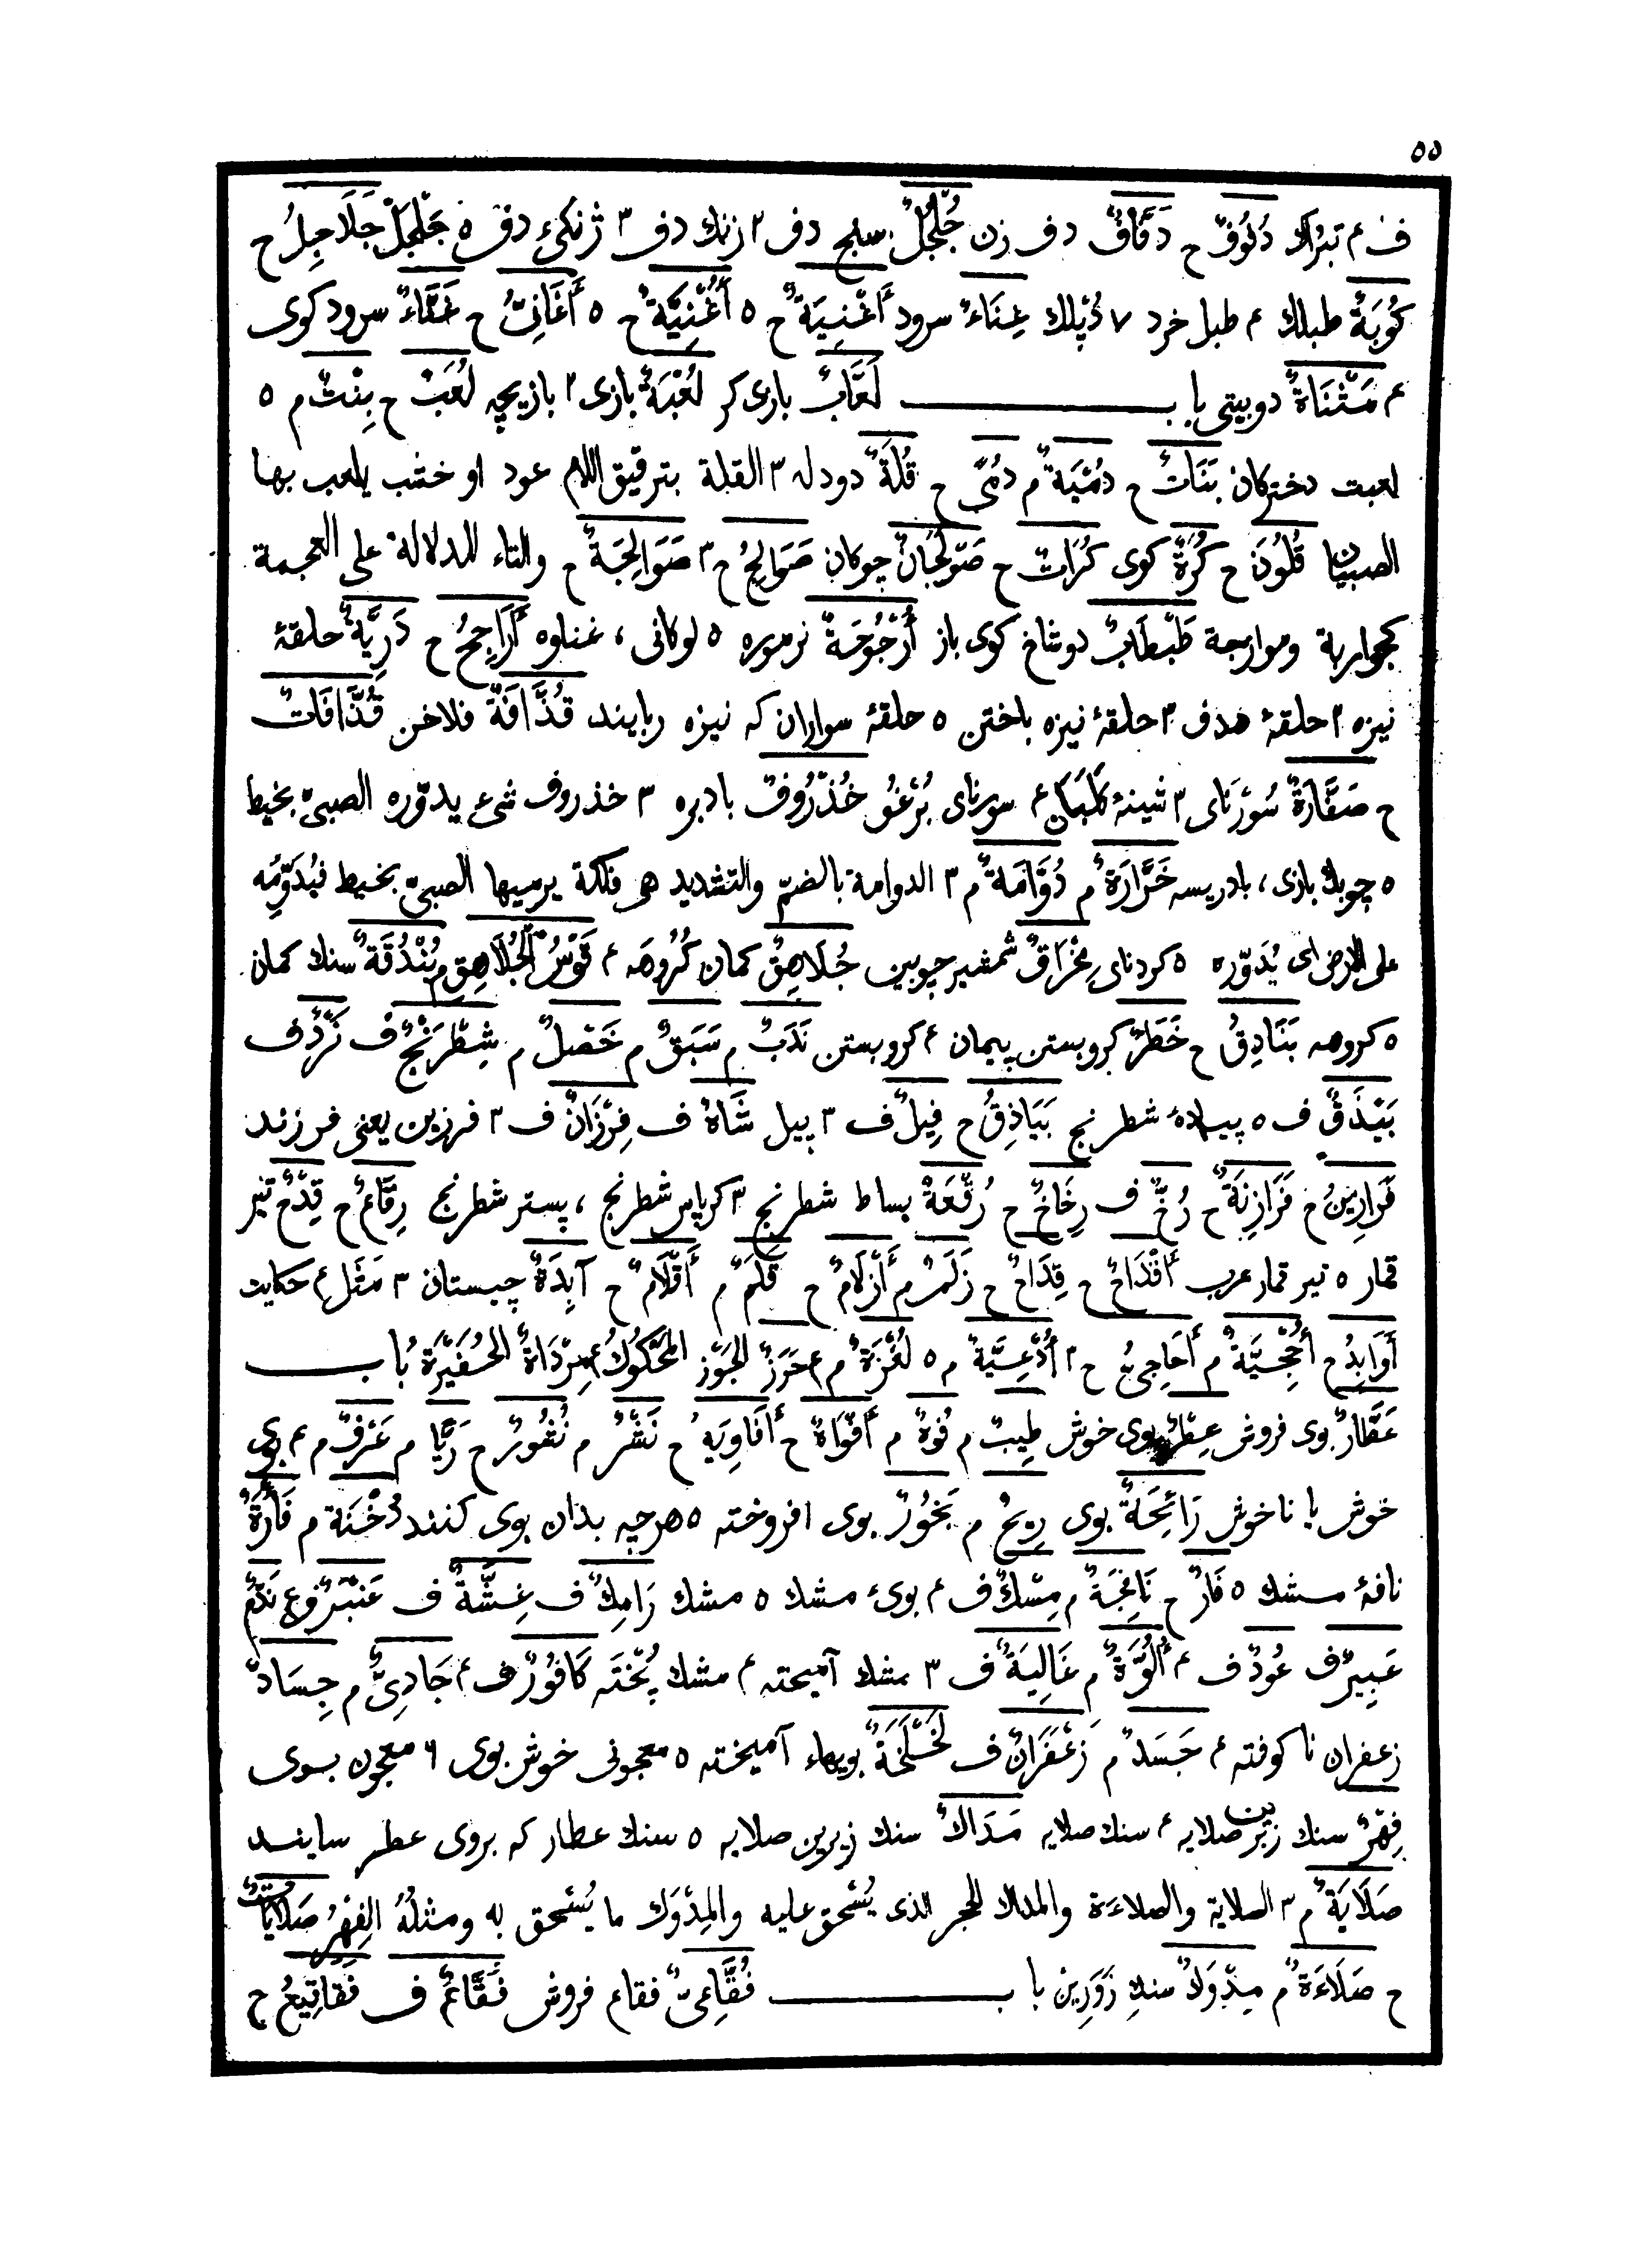 ٥٥
ف ۴ تبراك دُفُوفٌ ح دَفَّافٌ دف زن جُلْجُلٌ سلج دف ۲ زنك دف ۳ ژنكىء دف ٥ جَلْجَلٌ جَلَاجِلُ ح
كُوبَةٌ طبلك ۴ طبل خرد ٧ دُپلك غِنَاءٌ سرود أُغْنِيَةٌ ح ٥ أُغْنِيَّةٌ ح ٥ أَغَانِىُّ ح غَنَّاءٌ سرود كوى
۴ مَثْنَاةٌ دوبيتى باب لَعَّابٌ بازى كر لُعْبَةٌ بازى ۲ بازيچه لُعَبٌ ح بِنْتٌ م ٥
لعبت دختركان بَنَاتٌ ح دُمْيَةٌ م دُمًى ح قُلَةٌ دودله ۳ القلة بترقيق اللام عود او خشب يلعب بها
الصبيان قُلُونَ ح كُرَةٌ كوى كُرَاتٌ ح صَوْلَجَانٌ چوكان صَوَالِجُ ح ۳ صَوَالِجَةٌ ح والتاء للدلالة على العجمة
كجواربة وموازجة طَبْطَابٌ دوشاخ كوى باز أُرْجُوحَةٌ نرموره ٥ لوكانى ، غنناوه أَرَاجِحُ ح دَرِيَّةٌ حلقهٔ
نيزه ۲ حلقهٔ هدف ۳ حلقهٔ نيزه باختن ٥ حلقهٔ سواران كه نيزه ربايند قُذَّافَةٌ فلاخن قُذَّافَاتٌ
ح صَفَّارَةٌ سُورْنَاى ۳ شينهٔ ۴ سورناى بُرْغُو خُذْرُوفٌ بادبره ۳ خذروف شىء يدوّره الصبىّ بخيط
٥ چوبك بازى ، بادريسه خَرَّارَةٌ م دُوَّامَةٌ م ۳ الدوامة بالضمّ والتشديد هى فلكة يرميها الصبىّ بخيط فيُدَوِّمُه
على الارض اى يُدَوّره ٥ كردناى مِخْرَاقٌ شمشير چوبين جُلَاهِقٌ كمان كُرُوهَه ۴ قَوْسُ الجُلَاهِقِ م بُنْدُقَةٌ سنك كمان
٥ كروهه بَنَادِقُ ح خَطَرٌ كروبستن پيمان ۴ كروبستن نَدَبٌ م سَبَقٌ م خَصْلٌ م شِطْرَنْجٌ ف نَرْدٌ ف
بَيْذَقٌ ف ٥ پيادهٔ شطرنج بَيَاذِقُ ح فِيلٌ ف ۳ پيل شَاهٌ ف فِرْزَانٌ ف ۳ فرزين يعنى فرزند
فَرَازِينُ ح فَرَازِنَةٌ ح رُخٌّ ف رِخَاخٌ ح رُقْعَةٌ بساط شطرنج ۳ كرپاس شطرنج ، پستر شطرنج رِقَاعٌ ح قِدْحٌ تير
قمار ٥ تير قمار عرب أَقْدَاحٌ ح قِدَاحٌ ح زَلَمٌ م أَزْلَامٌ ح قَلَمٌ م أَقْلَامٌ ح آبِدَةٌ چيستان ۳ مَثَل ۴ حكايت
أَوَابِدُ ح أُحْجِيَّةٌ م أَحَاجِىُّ ح ۲ أُدْعِيَّةٌ م ٥ لُغْزَةٌ م ۴ حَرَزٌ الجَوْز المَحْكُوكُ ۴ مِرْدَاةٌ الحُفَيْرَة باب
عَطَّارٌ بوى فروش عِطْرٌ بوى خوش طِيبٌ م فُوهٌ م أَفْوَاهٌ ح أَفَاوِيَه ح نَشْرٌ م نُشُورٌ ح رَيَّا م عَرْفٌ م ۴ بوى
خوش با ناخوش رَائِحَةٌ بوى رِيحٌ م بَخُورٌ بوى افروخته ٥ هرچه بدان بوى كنند دُخْنَة م فَأْرَةٌ
نافهٔ مشك ٥ فَارٌ ح نَافِجَةٌ م مِسْكٌ ف ۴ بوىء مشك ٥ مشك رَامِكٌ ف غِشَّةٌ ف عَنْبَرٌ ف ع نَدٌّ م
عَبِيرٌ ف عُودٌ ف ۴ أَلُوَّةٌ م غَالِيَةٌ ف ۳ مشك آميخته ۴ مشك پُخْتَه كَافُورٌ ف ۴ جَادِىٌّ م جِسَادٌ
زعفران نا كوفته ۴ جَسَدٌ م زَعْفَرَانٌ ف لَخْلَخَةٌ بويهاء آميخته ٥ معجونى خوش بوى ۶ معجون بوى
فِهْرٌ سنك زبرين صلايه ۴ سنك صلايه مَدَاكٌ سنك زيرين صلايه ٥ سنك عطار كه بروى عطر سايند
صَلَايَةٌ م ۳ الصلاية والصلاءة والمداك الحجر الذى يُسْحَق عليه والمِدْوَك ما يُسْحق به ومثلُهُ الفِهْرُ صَلَايَاتٌ
ح صَلَاءَةٌ م مِدْوَكٌ سنكِ زَوَرِين باب فُقَّاعِىٌّ فقاع فروش فُقَّاعٌ ف فَقَاقِيعُ ح